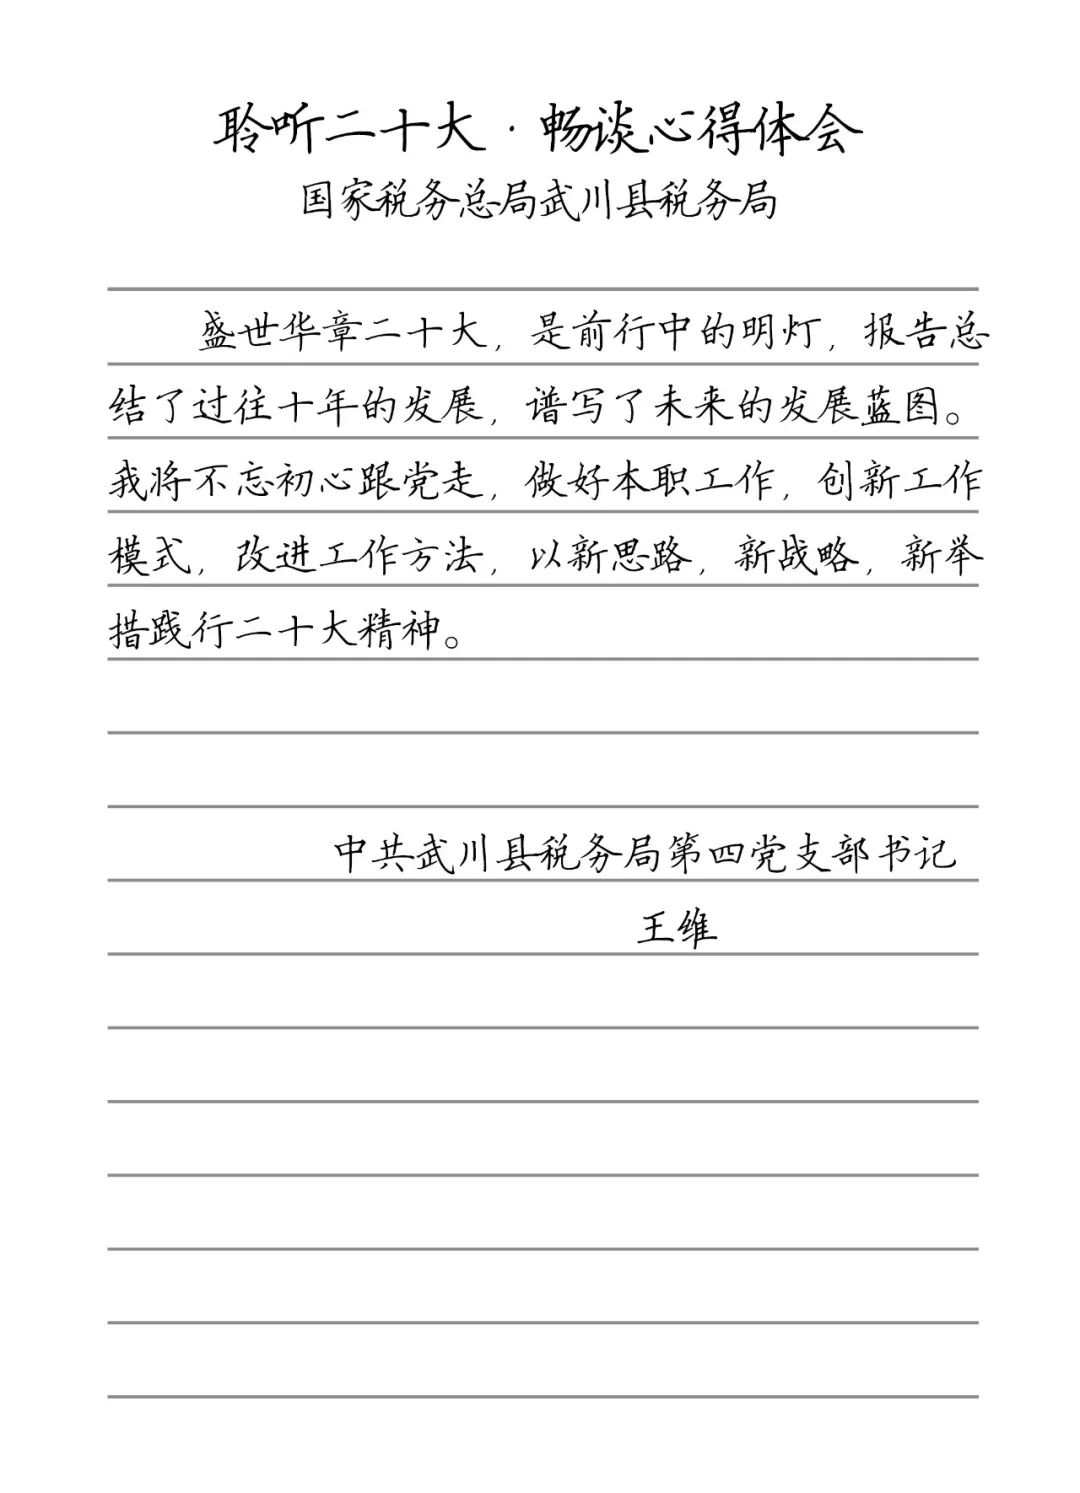 聆听二十大·畅谈心得体会
国家税务总局武川县税务局
盛世华章二十大，是前行中的明灯，报告总
结了过往十年的发展，谱写了未来的发展蓝图。
我将不忘初心跟党走，做好本职工作，创新工作
模式，改进工作方法，以新思路，新战略，新举
措践行二十大精神。
中共武川县税务局第四党支部书记
王维